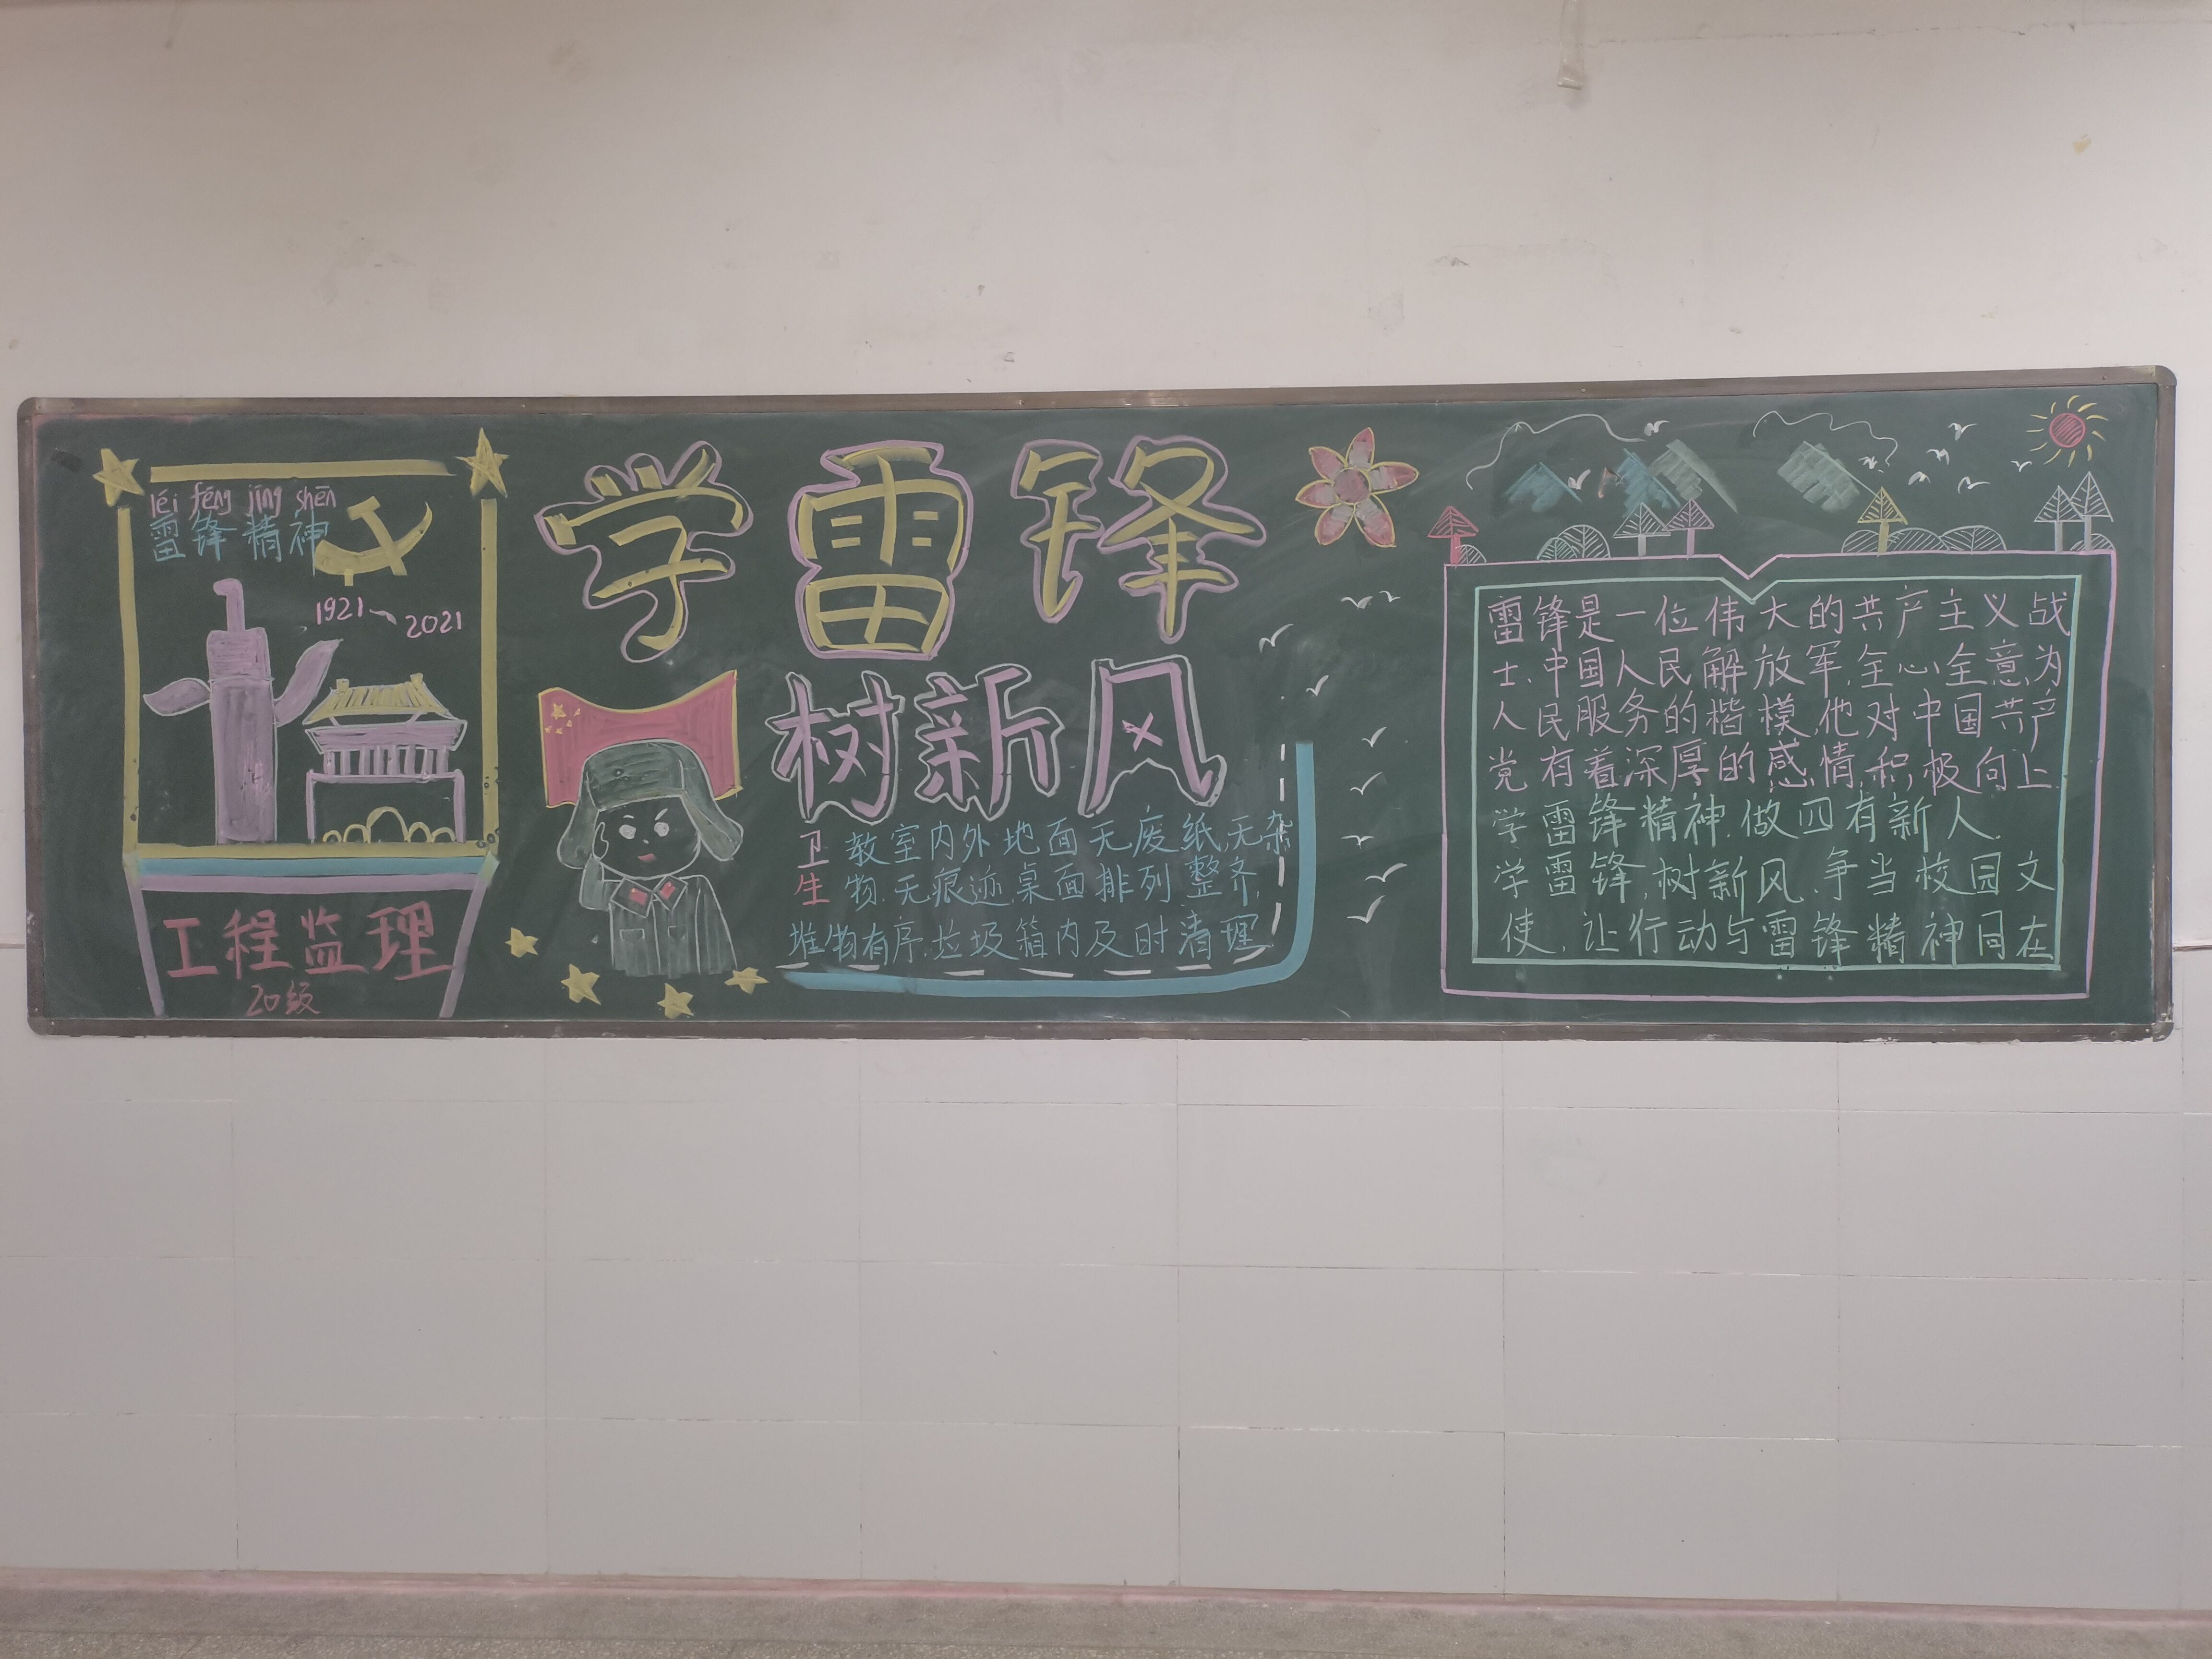 léi fēng jīng shēn
雷锋精神
1921~2021
工程监理
20级
学雷锋
树新风
卫生
教室内外地面无废纸,无杂
物.无痕迹.桌面排列整齐,
堆物有序.垃圾箱内及时清理
雷锋是一位伟大的共产主义战
士.中国人民解放军.全心全意为
人民服务的楷模,他对中国共产
党有着深厚的感情,积极向上.
学雷锋精神.做四有新人.
学雷锋,树新风.争当校园文
使.让行动与雷锋精神同在